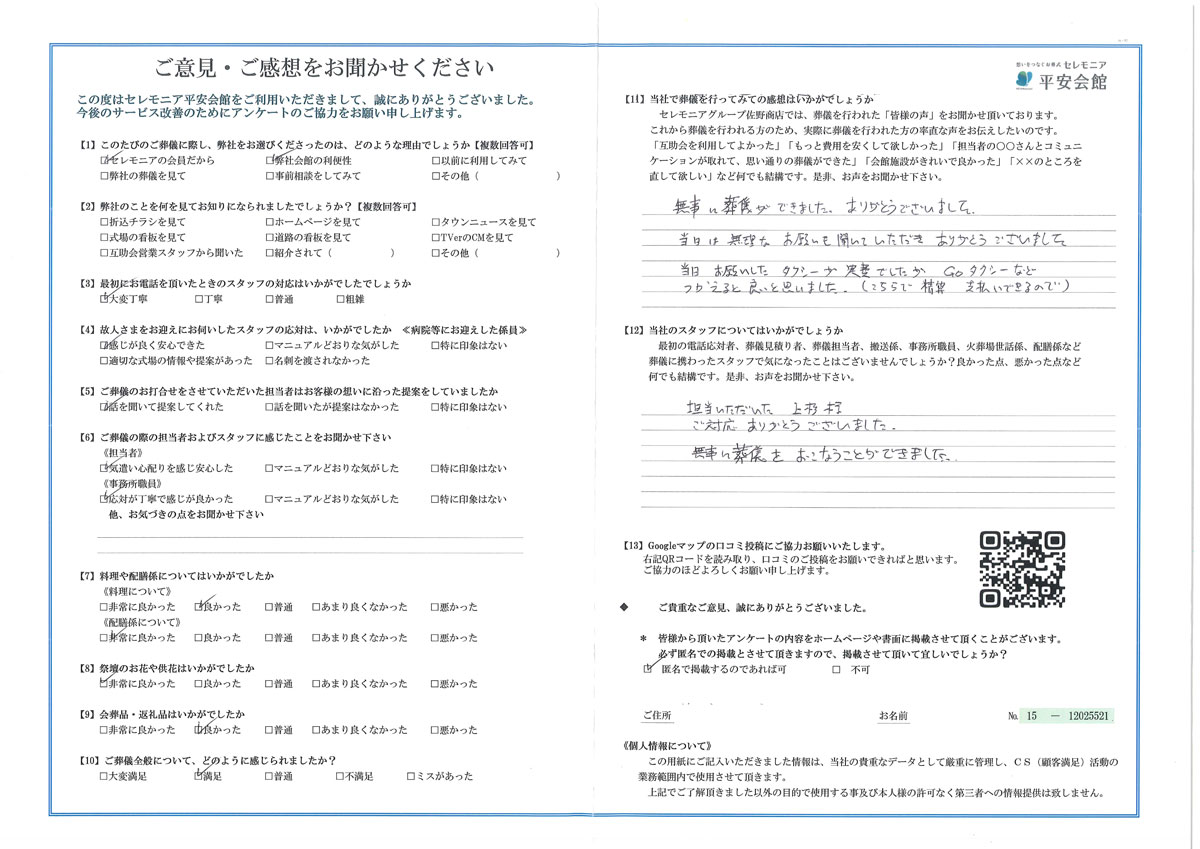 ご意見・ご感想をお聞かせください
この度はセレモニア平安会館をご利用いただきまして、誠にありがとうございました。
今後のサービス改善のためにアンケートのご協力をお願い申し上げます。
【1】このたびのご葬儀に際し、弊社をお選びくださったのは、どのような理由でしょうか【複数回答可】
☑セレモニアの会員だから ☑弊社会館の利便性 □以前に利用してみて
□弊社の葬儀を見て □事前相談をしてみて □その他（ ）
【2】弊社のことを何を見てお知りになられましたでしょうか？【複数回答可】
□折込チラシを見て □ホームページを見て □タウンニュースを見て
□式場の看板を見て □道路の看板を見て □TVerのCMを見て
□互助会営業スタッフから聞いた □紹介されて（ ） □その他（ ）
【3】最初にお電話を頂いたときのスタッフの対応はいかがでしたでしょうか
☑大変丁寧 □丁寧 □普通 □粗雑
【4】故人さまをお迎えにお伺いしたスタッフの応対は、いかがでしたか ≪病院等にお迎えした係員≫
☑感じが良く安心できた □マニュアルどおりな気がした □特に印象はない
□適切な式場の情報や提案があった □名刺を渡されなかった
【5】ご葬儀のお打合せをさせていただいた担当者はお客様の想いに沿った提案をしていましたか
☑話を聞いて提案してくれた □話を聞いたが提案はなかった □特に印象はない
【6】ご葬儀の際の担当者およびスタッフに感じたことをお聞かせ下さい
《担当者》
☑気遣い心配りを感じ安心した □マニュアルどおりな気がした □特に印象はない
《事務所職員》
☑応対が丁寧で感じが良かった □マニュアルどおりな気がした □特に印象はない
他、お気づきの点をお聞かせ下さい
【7】料理や配膳係についてはいかがでしたか
《料理について》
□非常に良かった ☑良かった □普通 □あまり良くなかった □悪かった
《配膳係について》
☑非常に良かった □良かった □普通 □あまり良くなかった □悪かった
【8】祭壇のお花や供花はいかがでしたか
☑非常に良かった □良かった □普通 □あまり良くなかった □悪かった
【9】会葬品・返礼品はいかがでしたか
□非常に良かった ☑良かった □普通 □あまり良くなかった □悪かった
【10】ご葬儀全般について、どのように感じられましたか？
□大変満足 ☑満足 □普通 □不満足 □ミスがあった
想いをつなぐお葬式 セレモニア
平安会館
【11】当社で葬儀を行ってみての感想はいかがでしょうか
セレモニアグループ佐野商店では、葬儀を行われた「皆様の声」をお聞かせ頂いております。
これから葬儀を行われる方のため、実際に葬儀を行われた方の率直な声をお伝えしたいのです。
「互助会を利用してよかった」「もっと費用を安くして欲しかった」「担当者の〇〇さんとコミュニ
ケーションが取れて、思い通りの葬儀ができた」「会館施設がきれいで良かった」「××のところを
直して欲しい」など何でも結構です。是非、お声をお聞かせ下さい。
無事に葬儀ができました。ありがとうございました。
当日は無理なお願いも聞いていただきありがとうございました
当日お願いしたタクシーが定番でしたが Goタクシーなど
つかえると良いと思いました。（こちらで精算 支払いできるので）
【12】当社のスタッフについてはいかがでしょうか
最初の電話応対者、葬儀見積り者、葬儀担当者、搬送係、事務所職員、火葬場世話係、配膳係など
葬儀に携わったスタッフで気になったことはございませんでしょうか？良かった点、悪かった点など
何でも結構です。是非、お声をお聞かせ下さい。
担当いただいた 上杉様
ご対応ありがとうございました。
無事に葬儀をおこなうことができました。
【13】Googleマップの口コミ投稿にご協力お願いいたします。
右記QRコードを読み取り、口コミのご投稿をお願いできればと思います。
ご協力のほどよろしくお願い申し上げます。
◆ ご貴重なご意見、誠にありがとうございました。
＊ 皆様から頂いたアンケートの内容をホームページや書面に掲載させて頂くことがございます。
必ず匿名での掲載とさせて頂きますので、掲載させて頂いて宜しいでしょうか？
☑ 匿名で掲載するのであれば可 □ 不可
ご住所 お名前 № 15 － 12025521
《個人情報について》
この用紙にご記入いただきました情報は、当社の貴重なデータとして厳重に管理し、ＣＳ（顧客満足）活動の
業務範囲内で使用させて頂きます。
上記でご了解頂きました以外の目的で使用する事及び本人様の許可なく第三者への情報提供は致しません。